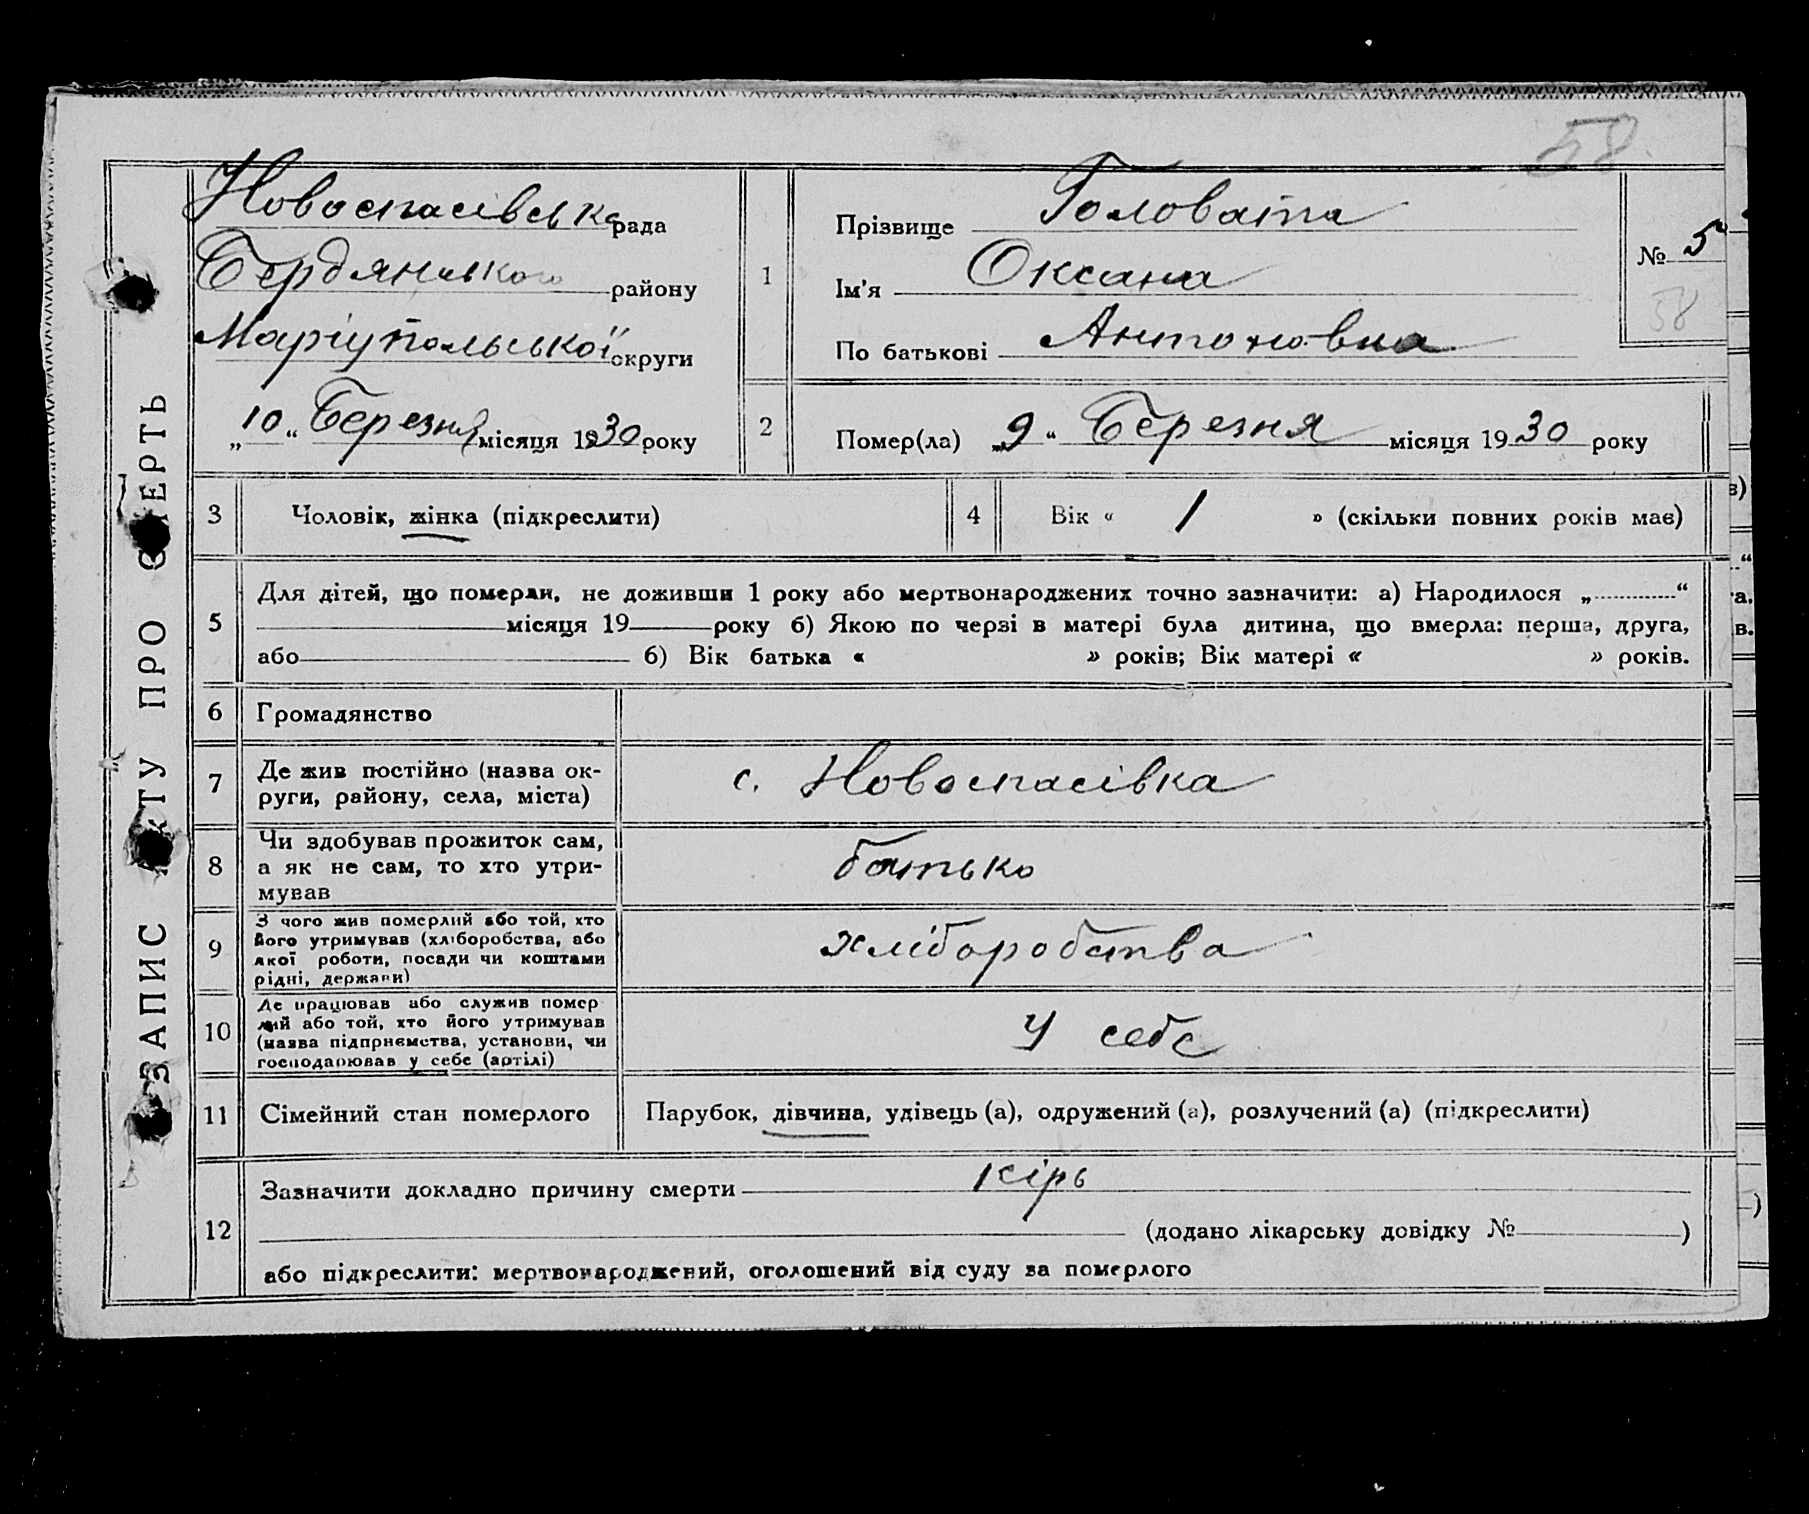 58
ЗАПИС АКТУ ПРО СМЕРТЬ
Новоспасівська рада
Бердянського району
Маріупольської округи
„10“ Березня місяця 1930 року
1
Прізвище Головата
Ім'я Оксана
По батькові Антоновна
№ 5
58
2
Помер(ла) „9“ Березня місяця 1930 року
3 Чоловік, жінка (підкреслити)
4 Вік « 1 » (скільки повних років має)
5
Для дітей, що померли, не доживши 1 року або мертвонароджених точно зазначити: а) Народилося „ “
місяця 19 року б) Якою по черзі в матері була дитина, що вмерла: перша, друга,
або б) Вік батька « » років; Вік матері « » років.
6 Громадянство
7
Де жив постійно (назва ок-
руги, району, села, міста)
с. Новоспасівка
8
Чи здобував прожиток сам,
а як не сам, то хто утри-
мував
батько
9
З чого жив померлий або той, хто
його утримував (хліборобства, або
якої роботи, посади чи коштами
рідні, держави)
хліборобства
10
Де працював або служив помер
лий або той, хто його утримував
(назва підприємства, установи, чи
господарював у себе (артілі)
У себе
11 Сімейний стан померлого
Парубок, дівчина, удівець (а), одружений (а), розлучений (а) (підкреслити)
12
Зазначити докладно причину смерти кірь
(додано лікарську довідку № )
або підкреслити: мертвонароджений, оголошений від суду за померлого